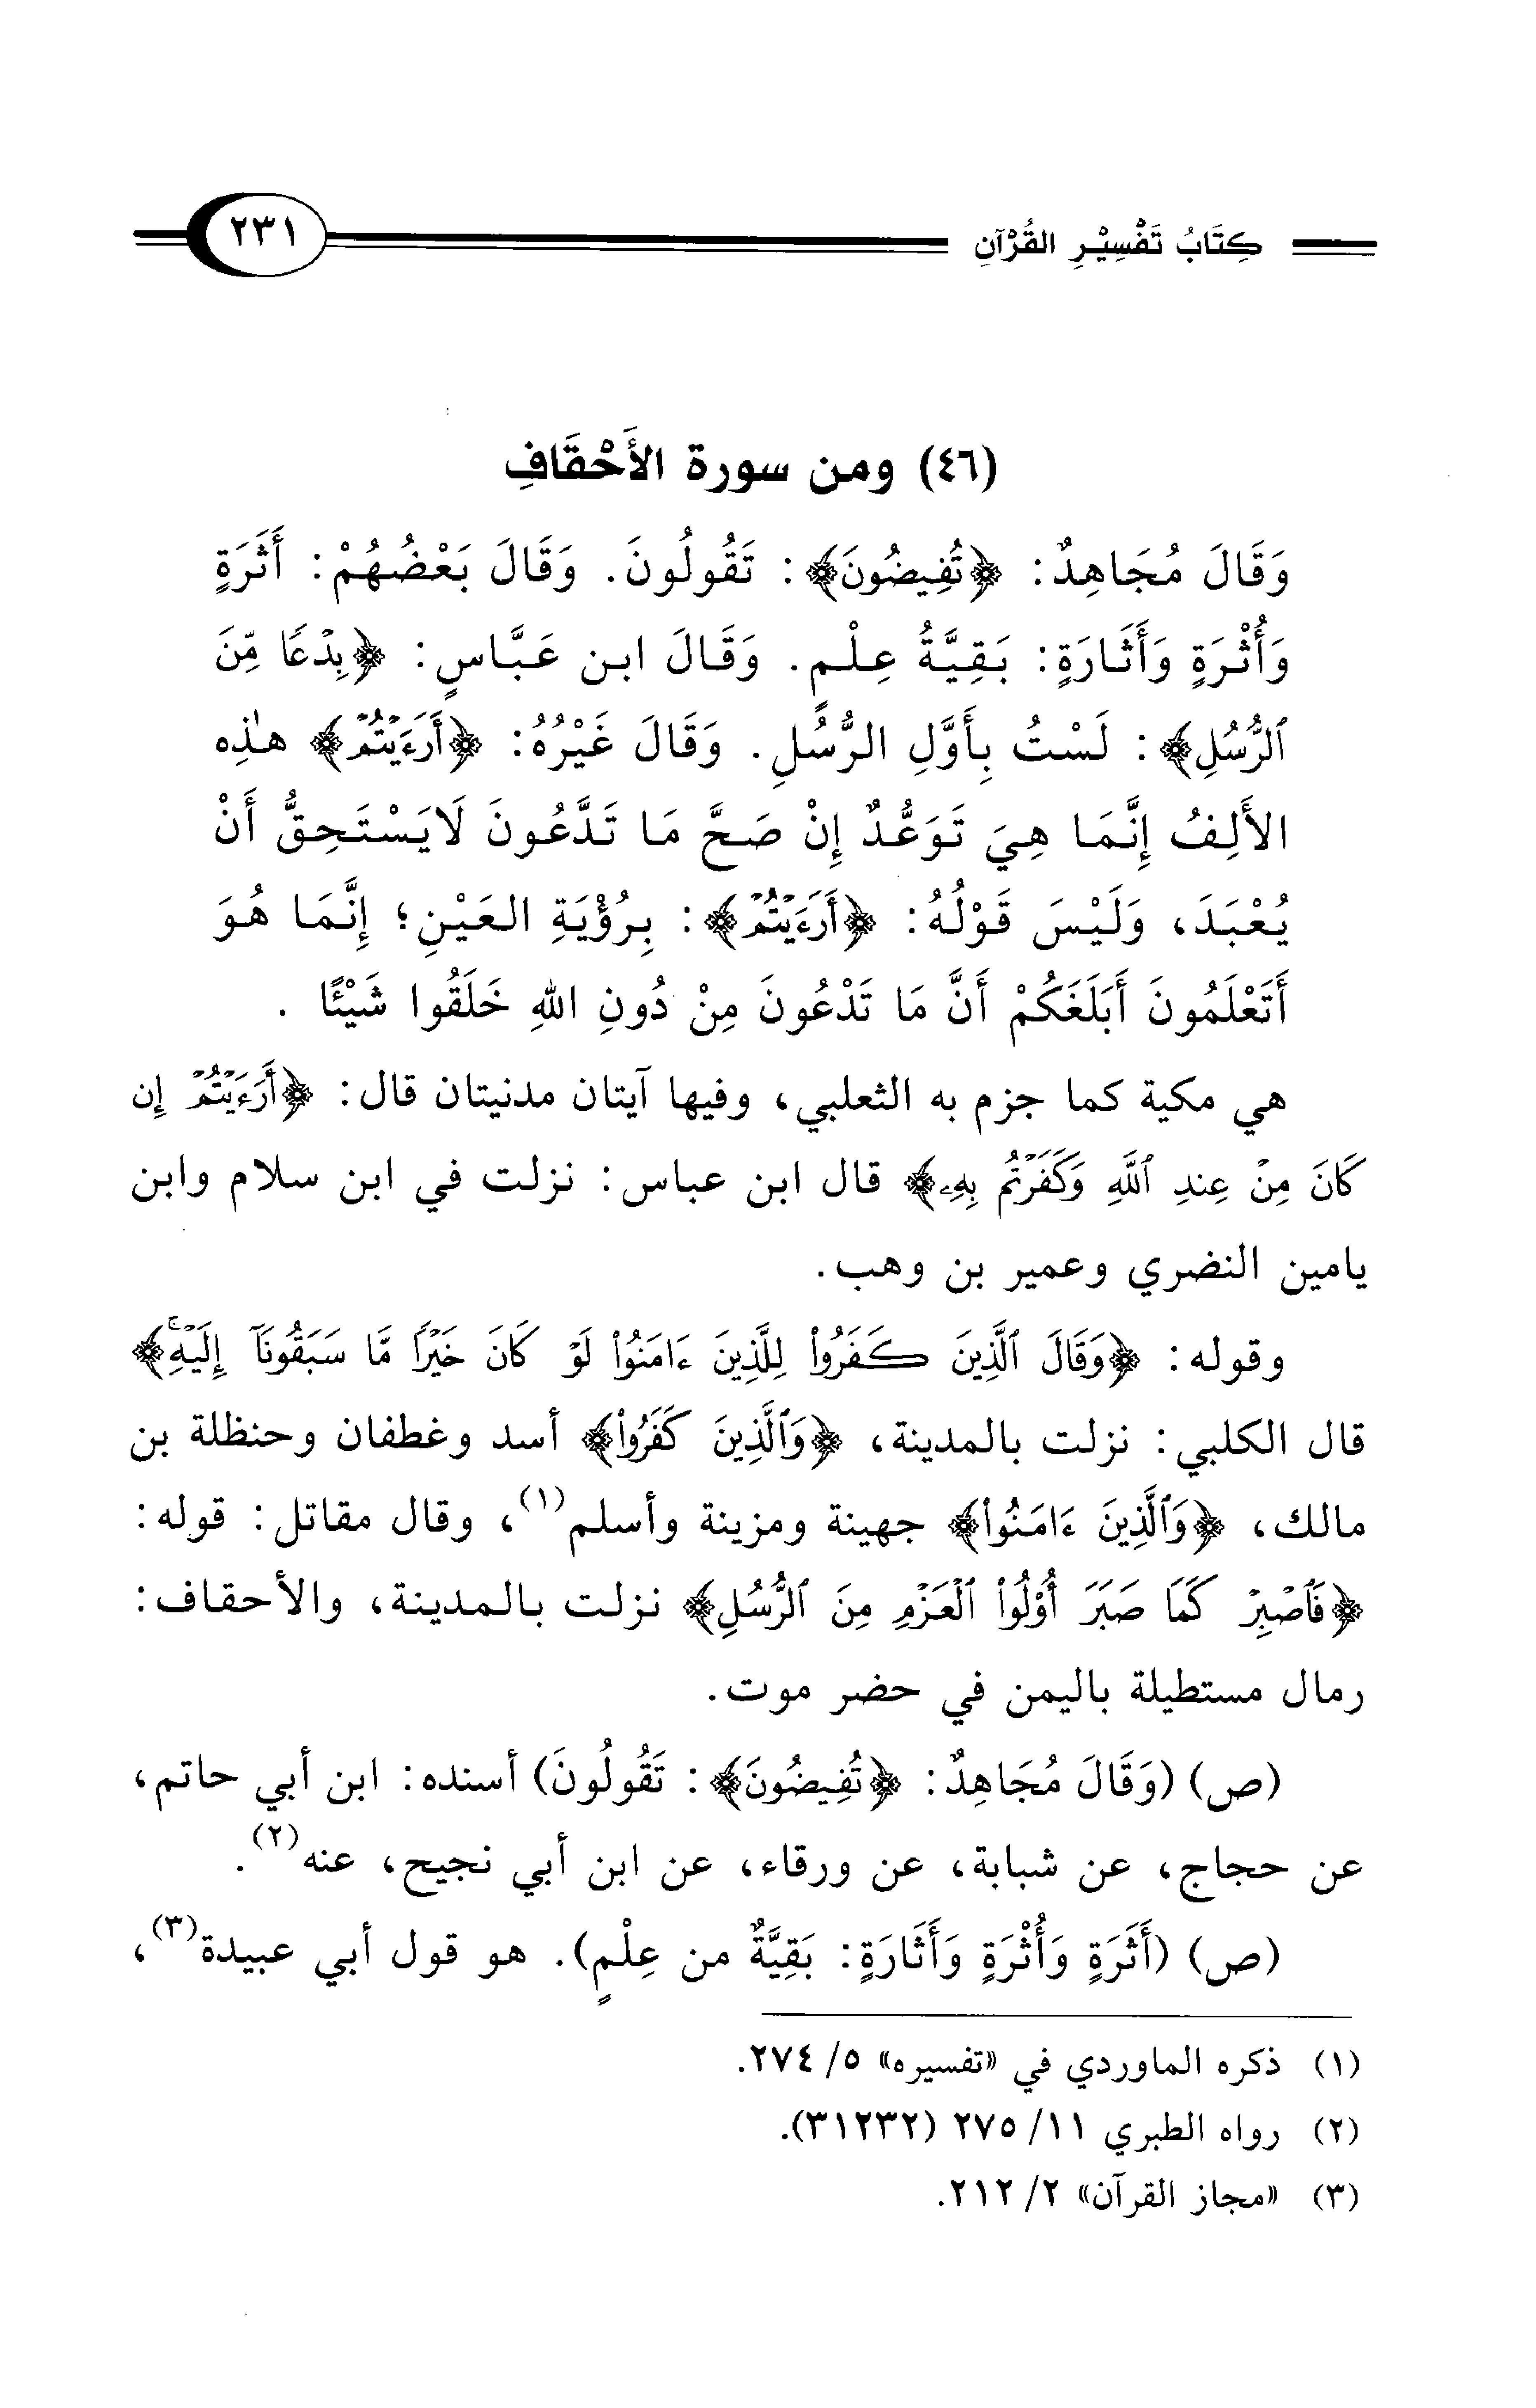 كِتَابُ تَفْسِيْرِ القُرْآنِ
٢٣١
(٤٦) ومن سورة الأَحْقَافِ
وَقَالَ مُجَاهِدٌ: ﴿تُفِيضُونَ﴾: تَقُولُونَ. وَقَالَ بَعْضُهُمْ: أَثَرَةٍ
وَأُثْرَةٍ وَأَثَارَةٍ: بَقِيَّةُ عِلْمٍ. وَقَالَ ابن عَبَّاسٍ: ﴿بِدْعًا مِّنَ
ٱلرُّسُلِ﴾: لَسْتُ بِأَوَّلِ الرُّسُلِ. وَقَالَ غَيْرُهُ: ﴿أَرَءَيْتُمْ﴾ هذِه
الأَلِفُ إِنَّمَا هِيَ تَوَعُّدٌ إِنْ صَحَّ مَا تَدَّعُونَ لَايَسْتَحِقُّ أَنْ
يُعْبَدَ، وَلَيْسَ قَوْلُهُ: ﴿أَرَءَيْتُمْ﴾: بِرُؤْيَةِ العَيْنِ؛ إِنَّمَا هُوَ
أَتَعْلَمُونَ أَبَلَغَكُمْ أَنَّ مَا تَدْعُونَ مِنْ دُونِ اللهِ خَلَقُوا شَيْئًا .
هي مكية كما جزم به الثعلبي، وفيها آيتان مدنيتان قال: ﴿أَرَءَيْتُمْ إِن
كَانَ مِنْ عِندِ ٱللَّهِ وَكَفَرْتُم بِهِۦ﴾ قال ابن عباس: نزلت في ابن سلام وابن
يامين النضري وعمير بن وهب.
وقوله: ﴿وَقَالَ ٱلَّذِينَ كَفَرُوا۟ لِلَّذِينَ ءَامَنُوا۟ لَوْ كَانَ خَيْرًا مَّا سَبَقُونَآ إِلَيْهِۚ﴾
قال الكلبي: نزلت بالمدينة، ﴿وَٱلَّذِينَ كَفَرُوا۟﴾ أسد وغطفان وحنظلة بن
مالك، ﴿وَٱلَّذِينَ ءَامَنُوا۟﴾ جهينة ومزينة وأسلم(١)، وقال مقاتل: قوله:
﴿فَٱصْبِرْ كَمَا صَبَرَ أُو۟لُوا۟ ٱلْعَزْمِ مِنَ ٱلرُّسُلِ﴾ نزلت بالمدينة، والأحقاف:
رمال مستطيلة باليمن في حضر موت.
(ص) (وَقَالَ مُجَاهِدٌ: ﴿تُفِيضُونَ﴾: تَقُولُونَ) أسنده: ابن أبي حاتم،
عن حجاج، عن شبابة، عن ورقاء، عن ابن أبي نجيح، عنه(٢).
(ص) (أَثَرَةٍ وَأُثْرَةٍ وَأَثَارَةٍ: بَقِيَّةٌ من عِلْمٍ). هو قول أبي عبيدة(٣)،
(١) ذكره الماوردي في «تفسيره» ٥/ ٢٧٤.
(٢) رواه الطبري ١١/ ٢٧٥ (٣١٢٣٢).
(٣) «مجاز القرآن» ٢/ ٢١٢.